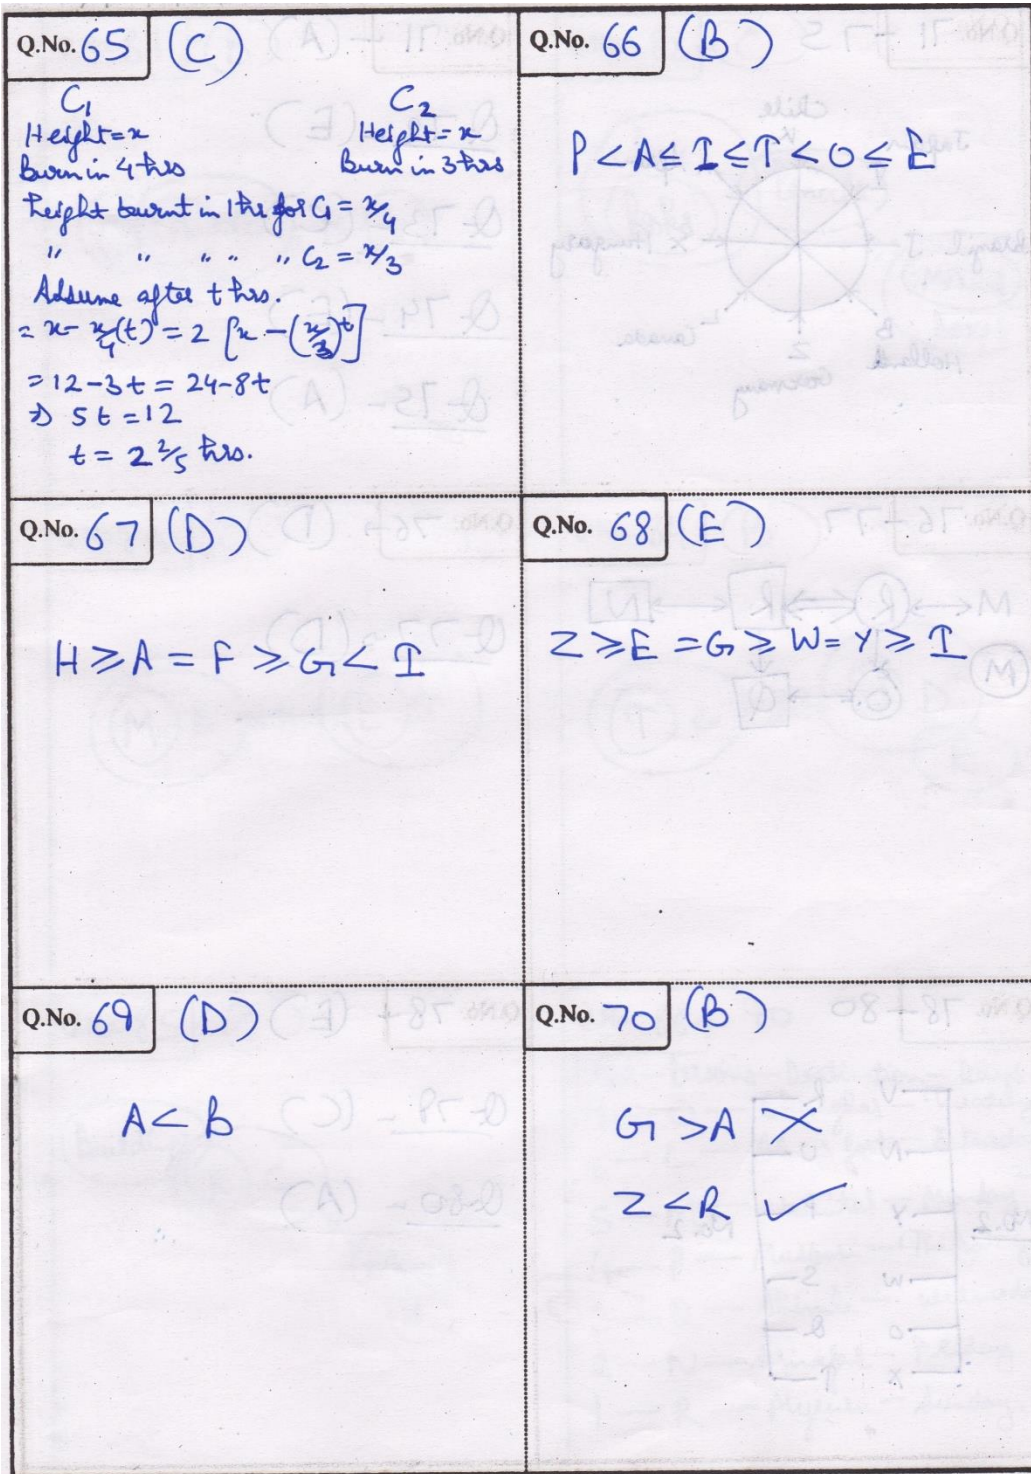 Q.No. 65 (C)
C1 C2
Height = x Height = x
Burn in 4 hrs Burn in 3 hrs
height burnt in 1 hr for C1 = x/4
" " " " " C2 = x/3
Assume after t hrs.
= x - x/4 (t) = 2 [x - (x/3)t]
= 12 - 3t = 24 - 8t
⇒ 5t = 12
t = 2 2/5 hrs.
Q.No. 66 (B)
P < A ≤ I ≤ T < O ≤ E
Q.No. 67 (D)
H ≥ A = F ≥ G < I
Q.No. 68 (E)
Z ≥ E = G ≥ W = Y ≥ I
Q.No. 69 (D)
A < B
Q.No. 70 (B)
G > A ✗
Z < R ✓